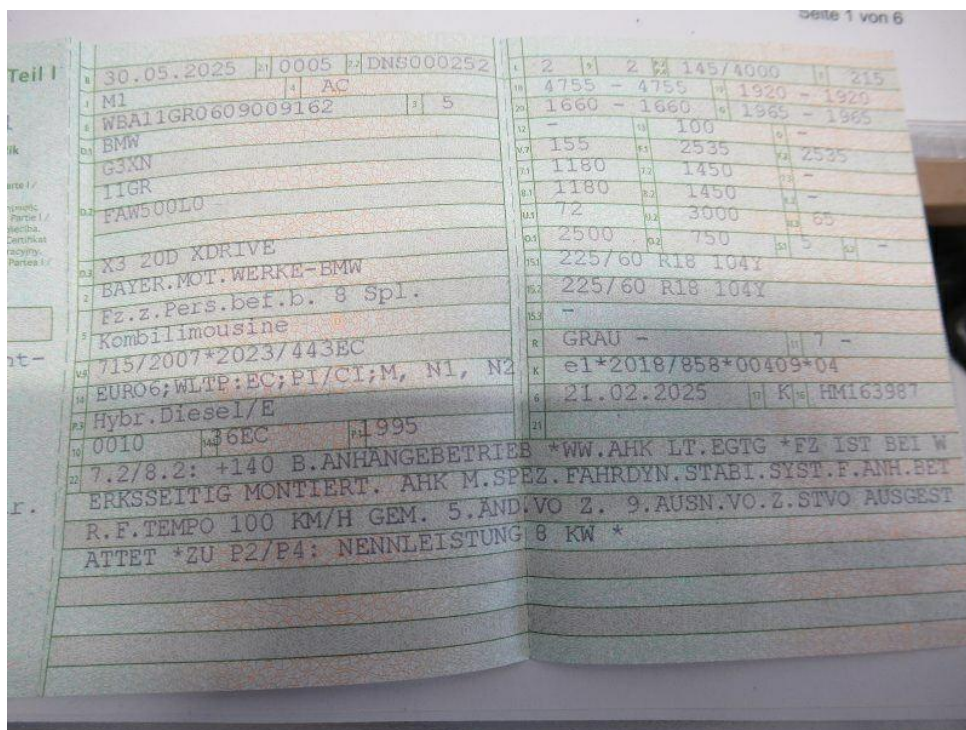 Seite 1 von 6
Teil I
B 30.05.2025 2.1 0005 2.2 DNS000252
J M1 4 AC
E WBA11GR0609009162 3 5
D.1 BMW
D.2 G3XN
11GR
FAW500L0
D.3 X3 20D XDRIVE
2 BAYER.MOT.WERKE-BMW
5 Fz.z.Pers.bef.b. 8 Spl.
Kombilimousine
V.9 715/2007*2023/443EC
14 EURO6;WLTP:EC;PI/CI;M, N1, N2
P.3 Hybr.Diesel/E
10 0010 14.1 36EC P.1 1995
L 2 9 2 P.2 P.4 145/4000 T 215
18 4755 - 4755 19 1920 - 1920
20 1660 - 1660 G 1965 - 1965
12 - 13 100 Q -
V.7 155 F.1 2535 F.2 2535
7.1 1180 7.2 1450 7.3 -
8.1 1180 8.2 1450 8.3 -
U.1 72 U.2 3000 U.3 65
O.1 2500 O.2 750 S.1 5 S.2 -
15.1 225/60 R18 104Y
15.2 225/60 R18 104Y
15.3 -
R GRAU - 11 7 -
K e1*2018/858*00409*04
6 21.02.2025 17 K 16 HM163987
21
22 7.2/8.2: +140 B.ANHÄNGEBETRIEB *WW.AHK LT.EGTG *FZ IST BEI W
ERKSSEITIG MONTIERT. AHK M.SPEZ.FAHRDYN.STABI.SYST.F.ANH.BET
R.F.TEMPO 100 KM/H GEM. 5.ÄND.VO Z. 9.AUSN.VO.Z.STVO AUSGEST
ATTET *ZU P2/P4: NENNLEISTUNG 8 KW *